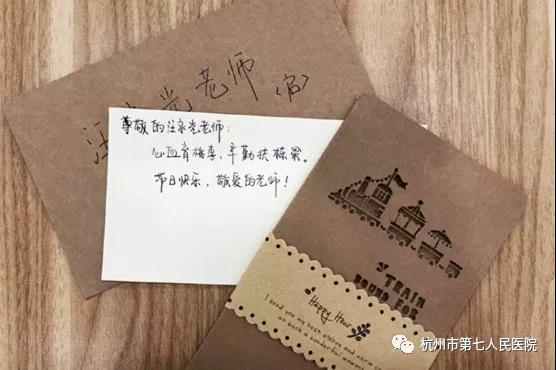 汪永光老师
(启)
尊敬的汪永光老师:
心血育桃李,辛勤扶栋梁。
节日快乐,敬爱的老师!
TRAIN
BOUND FOR
Happy Hour
I send you my best wishes and warm
at such a wonderful moment
杭州市第七人民医院